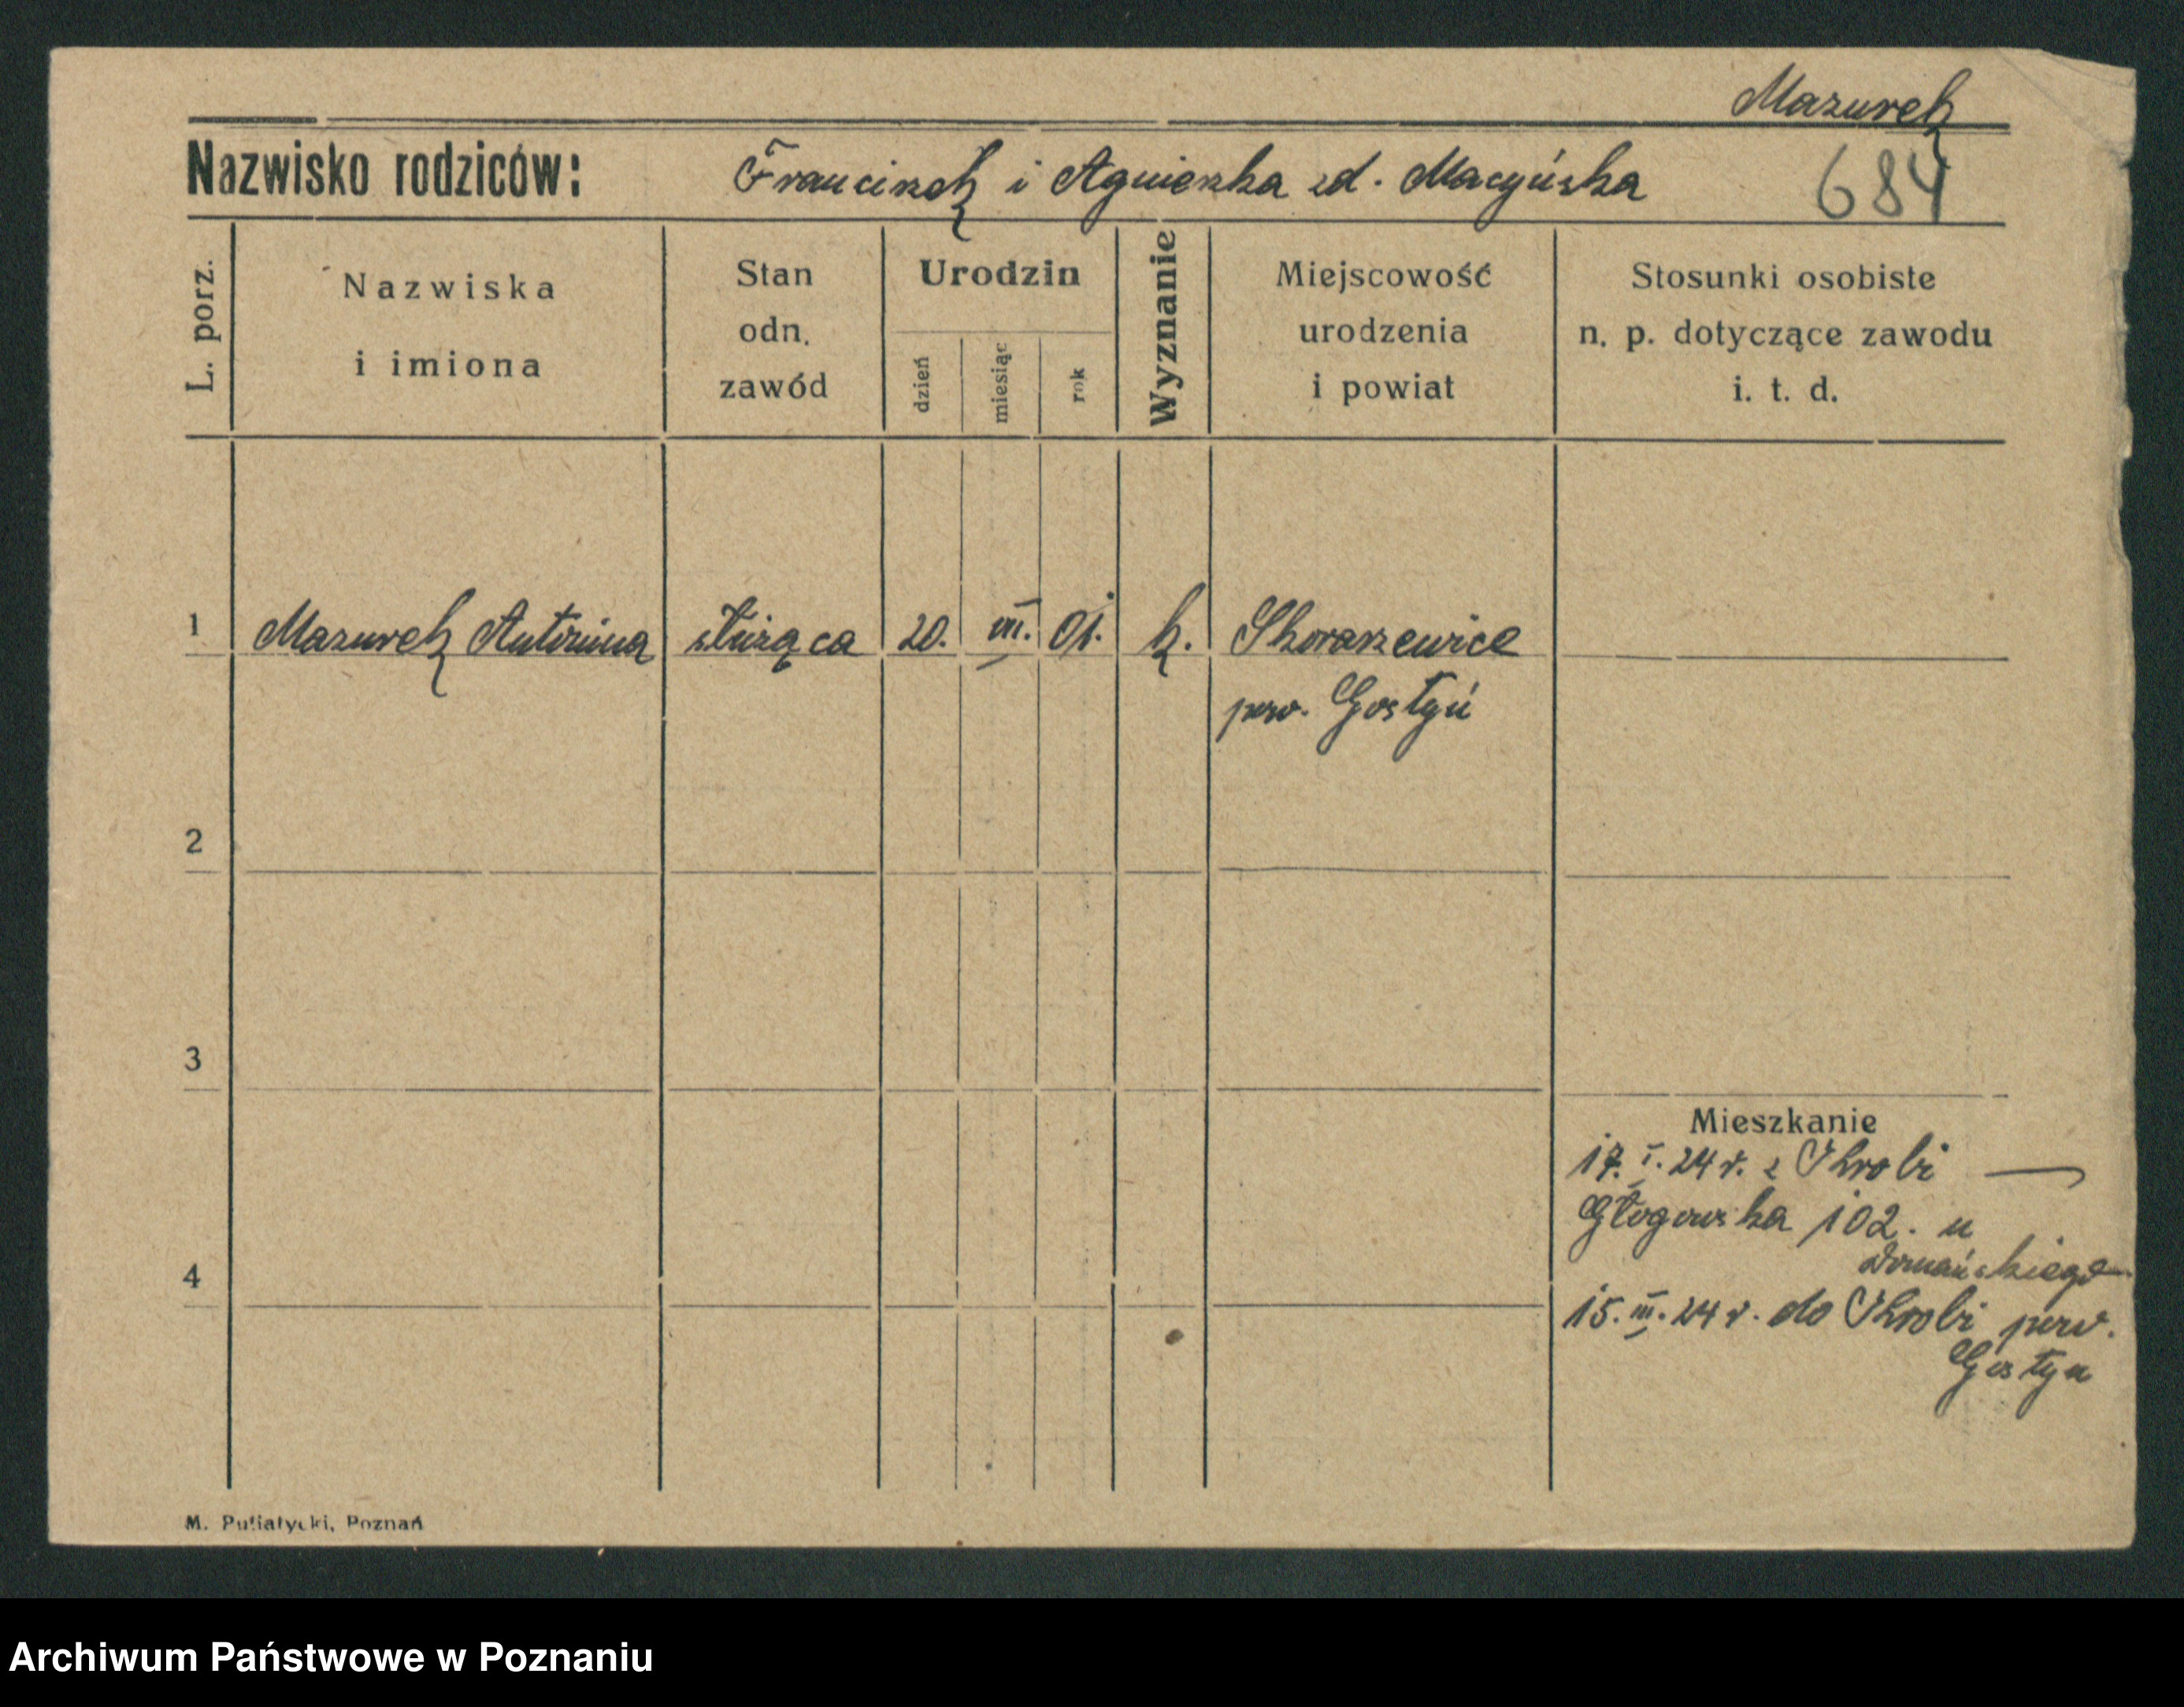 Mazurek
Nazwisko rodziców: Franciszek i Agnieszka zd. Macyńska
684
L. porz.
Nazwiska
i imiona
Stan
odn.
zawód
Urodzin
dzień
miesiąc
rok
Wyznanie
Miejscowość
urodzenia
i powiat
Stosunki osobiste
n. p. dotyczące zawodu
i. t. d.
1 Mazurek Antonina służąca 20. III. 01. k. Skoraszewice
pow. Gostyń
2
3
Mieszkanie
17. I. 24 r. z Krobi
Głogowska 102. u
Domańskiego
4
15. III. 24 r. do Krobi pow.
Gostyn
M. Putiatycki, Poznań
Archiwum Państwowe w Poznaniu